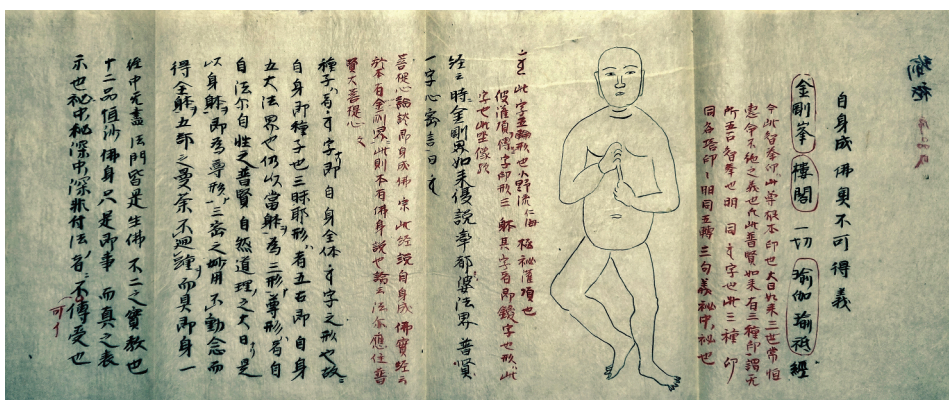 自身成佛奥不可得義
金剛峯樓閣一切瑜伽瑜祇經
今此智拳印此尊根本印也大日如来三世常恒
恵命不絶之義也此普賢如来有三種印謂无
所五古智拳也明同字也此三種印
同各塔印明同互轉三句義秘中秘也
此字五輪形也小野流仁海極秘灌頂也
灌頂傳字印形三躰其字者即鏡字也形此
字也此坐像歟
經云時金剛界如来復説率都婆法界普賢
一字心密言曰
菩提心論談即身成佛宗此經説自身成佛實經云
於本有金剛界此則本有佛身説也論云法尓應住普
賢大菩提心
種子有字即自身全体字之形也故
自身即種子也三昧耶形有五古即自身
五大法界也仍以當躰為三形尊形者自
自法尓自性之普賢自然道理之大日是
以身躰即為尊形三密之妙用不動念而
得全躰五部之曼荼不廻䟽而具即身一
經中无盡法門皆是生佛不二之實教也
十二品恒沙佛身只是即事而真之表
示也秘中秘深中深非付法者不傳受也
可